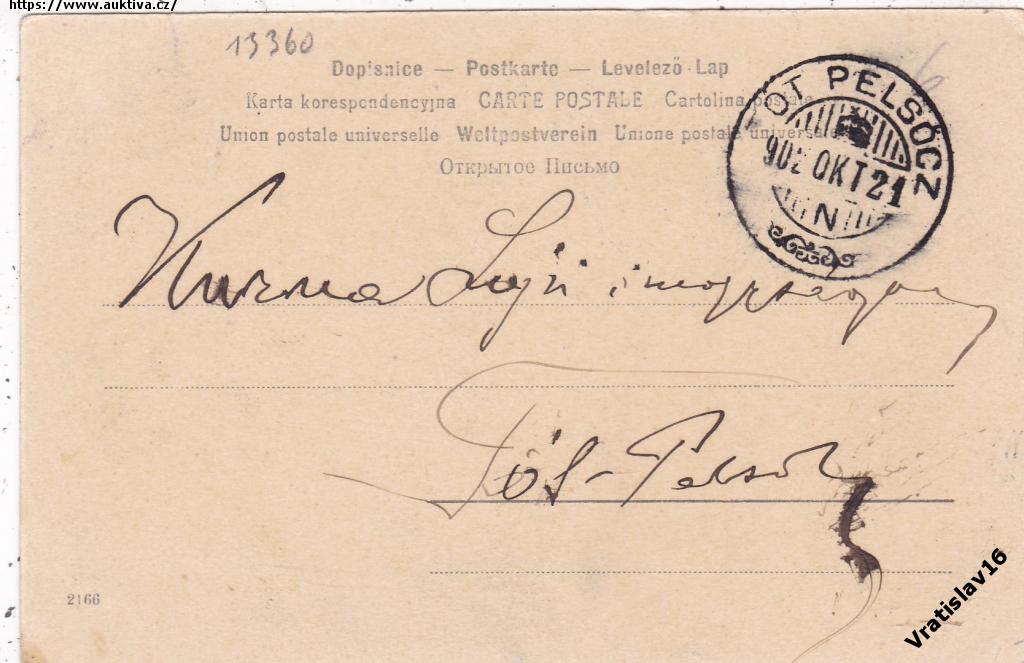 https://www.auktiva.cz/
13360
Dopisnice — Postkarte — Levelező-Lap
Karta korespondencyjna CARTE POSTALE Cartolina postale
Union postale universelle Weltpostverein Unione postale universale
Открытое Письмо
TOT PELSŐCZ
902 OKT 21
N
Lujzi
Tót-Pelsőcz
2166
Vratislav16